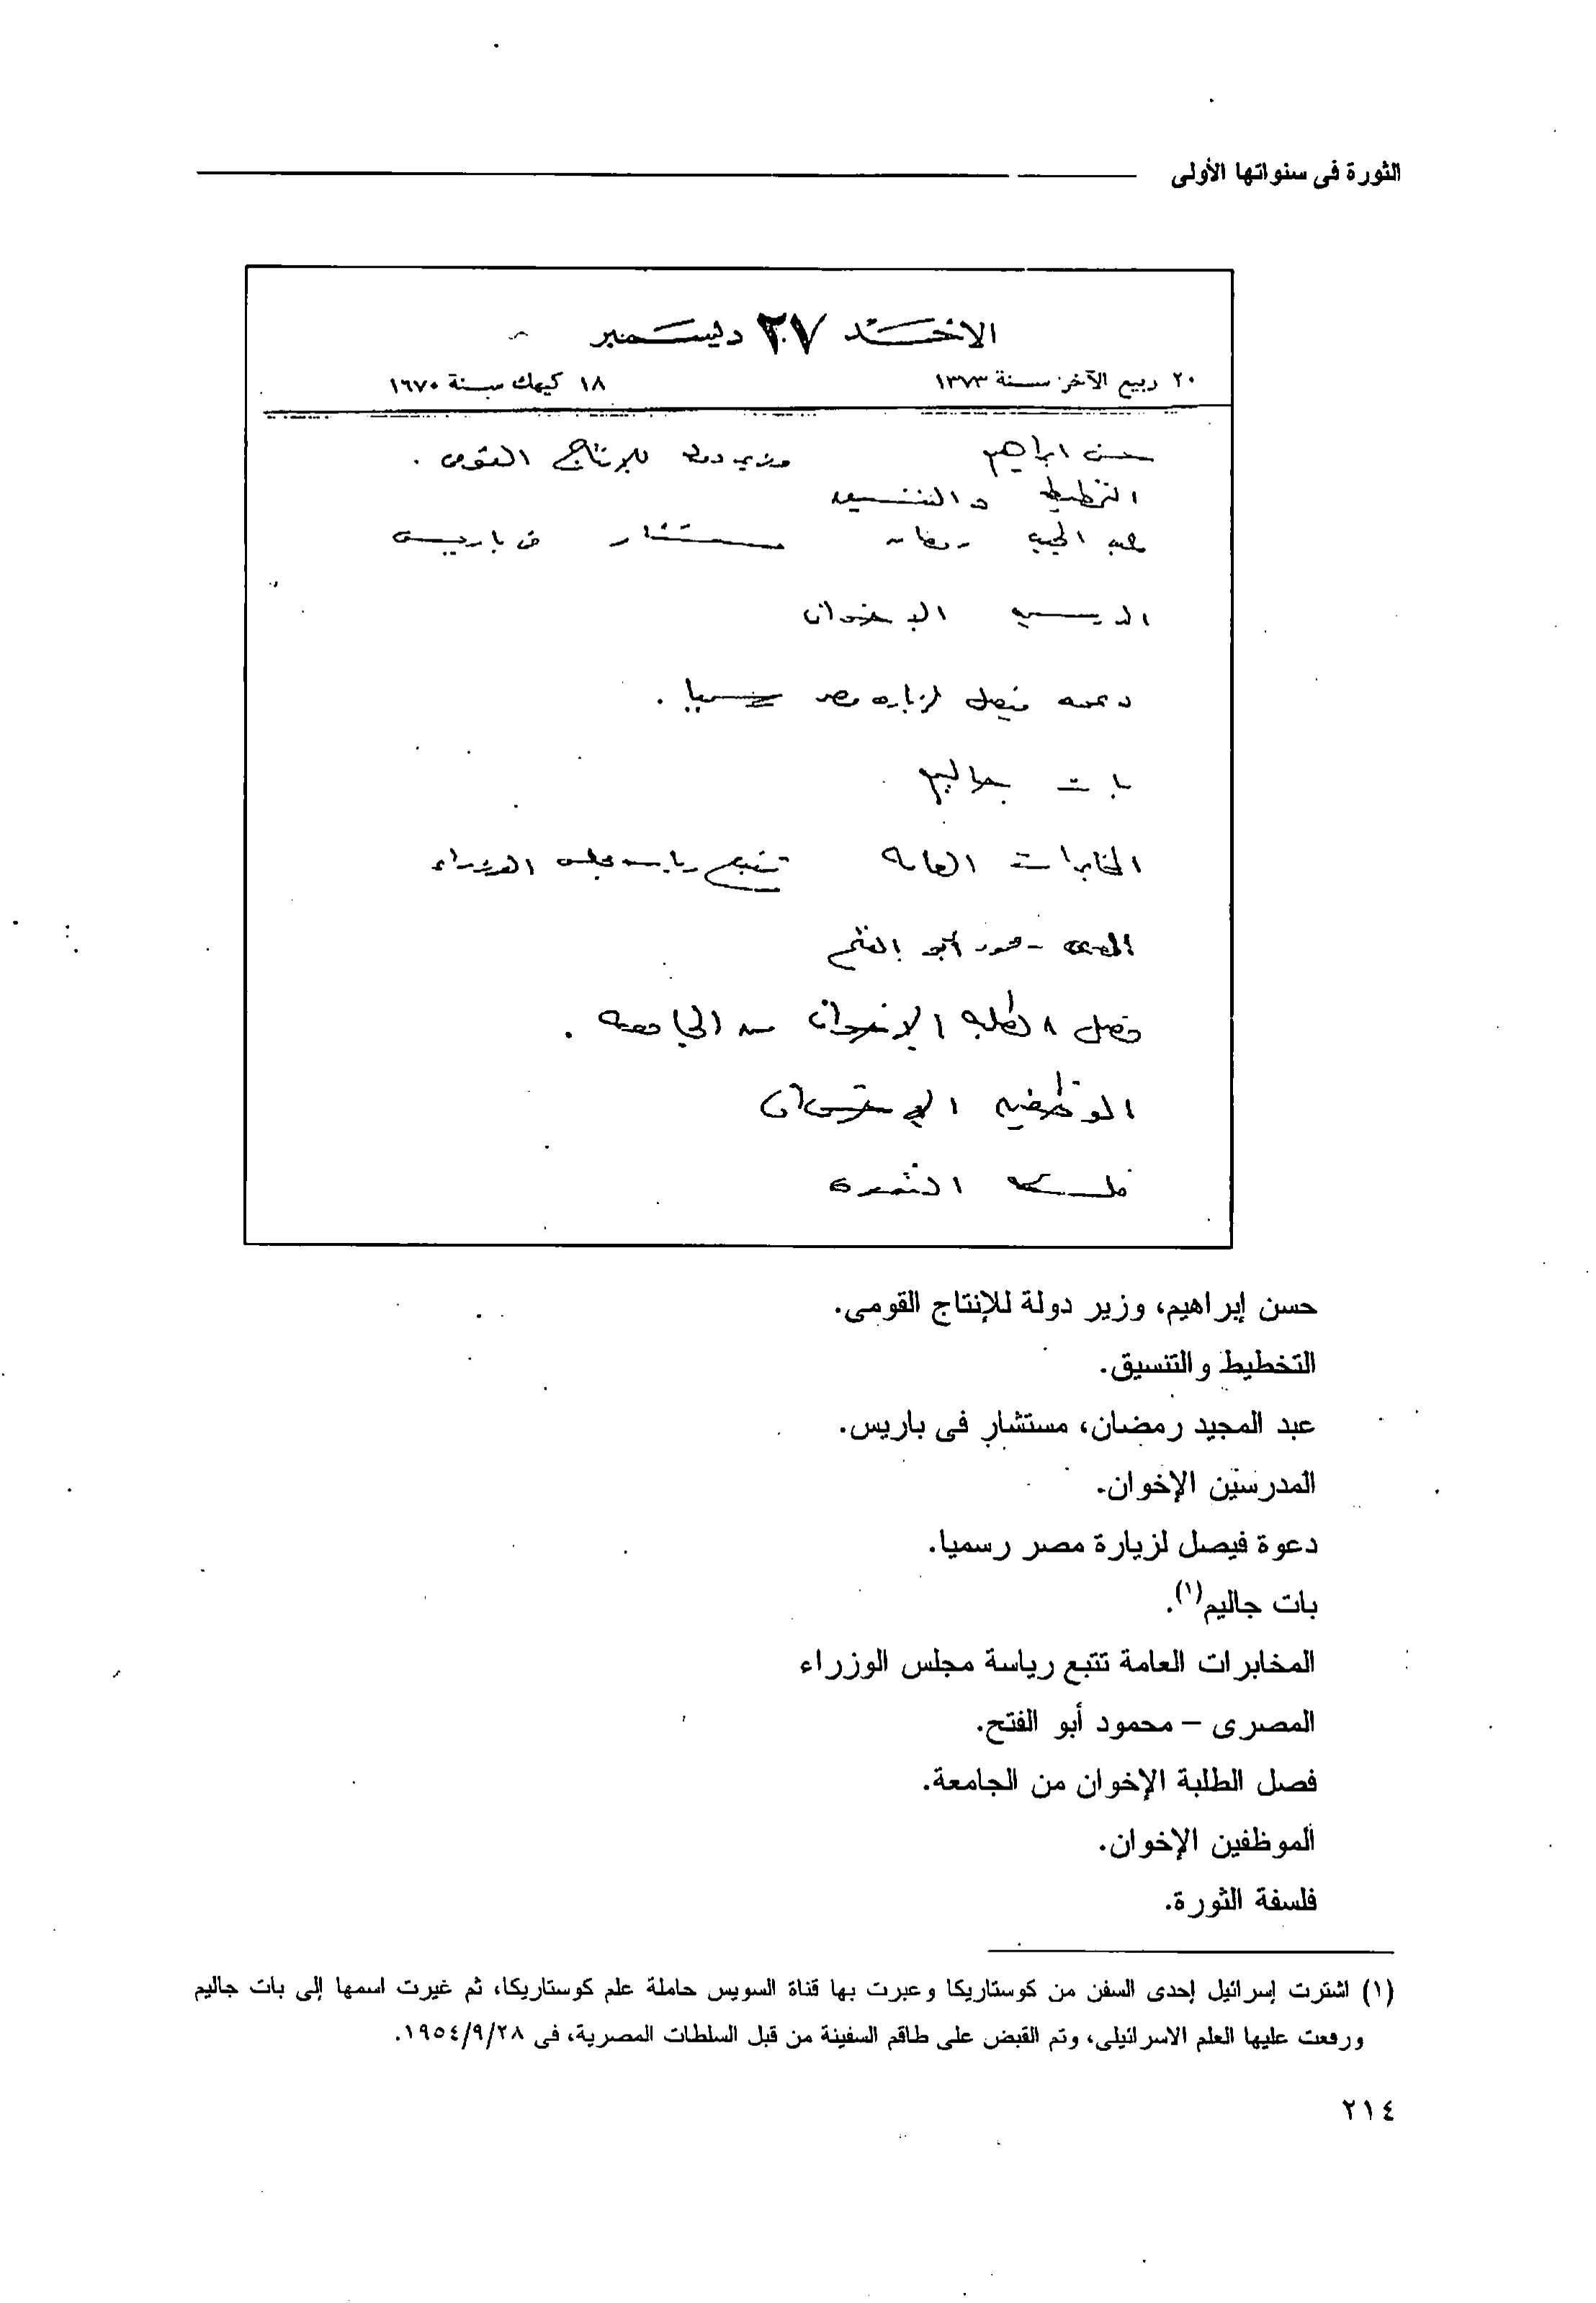 الثورة فى سنواتها الأولى
الاحد ٢٧ ديسمبر
٢٠ ربيع الآخر سنة ١٣٧٣ ١٨ كيهك سنة ١٦٧٠
حسن ابراهيم وزير دولة للإنتاج القومى .
التخطيط والتنسيق
عبد المجيد رمضان مستشار فى باريس
المدرسين الإخوان
دعوة فيصل لزياره مصر رسميا .
بات جاليم
المخابرات العامه تتبع رياسه مجلس الوزراء
المصرى - محمود أبو الفتح
فصل الطلبه الإخوان من الجامعه .
الموظفين الإخوان
فلسفه الثورة
حسن إبراهيم، وزير دولة للإنتاج القومى.
التخطيط والتنسيق.
عبد المجيد رمضان، مستشار فى باريس.
المدرسين الإخوان.
دعوة فيصل لزيارة مصر رسميا.
بات جاليم(١).
المخابرات العامة تتبع رياسة مجلس الوزراء
المصرى – محمود أبو الفتح.
فصل الطلبة الإخوان من الجامعة.
الموظفين الإخوان.
فلسفة الثورة.
(١) اشترت إسرائيل إحدى السفن من كوستاريكا وعبرت بها قناة السويس حاملة علم كوستاريكا، ثم غيرت اسمها إلى بات جاليم
ورفعت عليها العلم الاسرائيلى، وتم القبض على طاقم السفينة من قبل السلطات المصرية، فى ١٩٥٤/٩/٢٨.
٢١٤